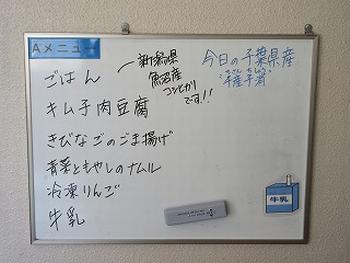 Aメニュー
ごはん
新潟県
魚沼産
コシヒカリ
です!!
キムチ肉豆腐
きびなごのごま揚げ
青菜ともやしのナムル
冷凍りんご
牛乳
今日の千葉県産
千産千消
牛乳